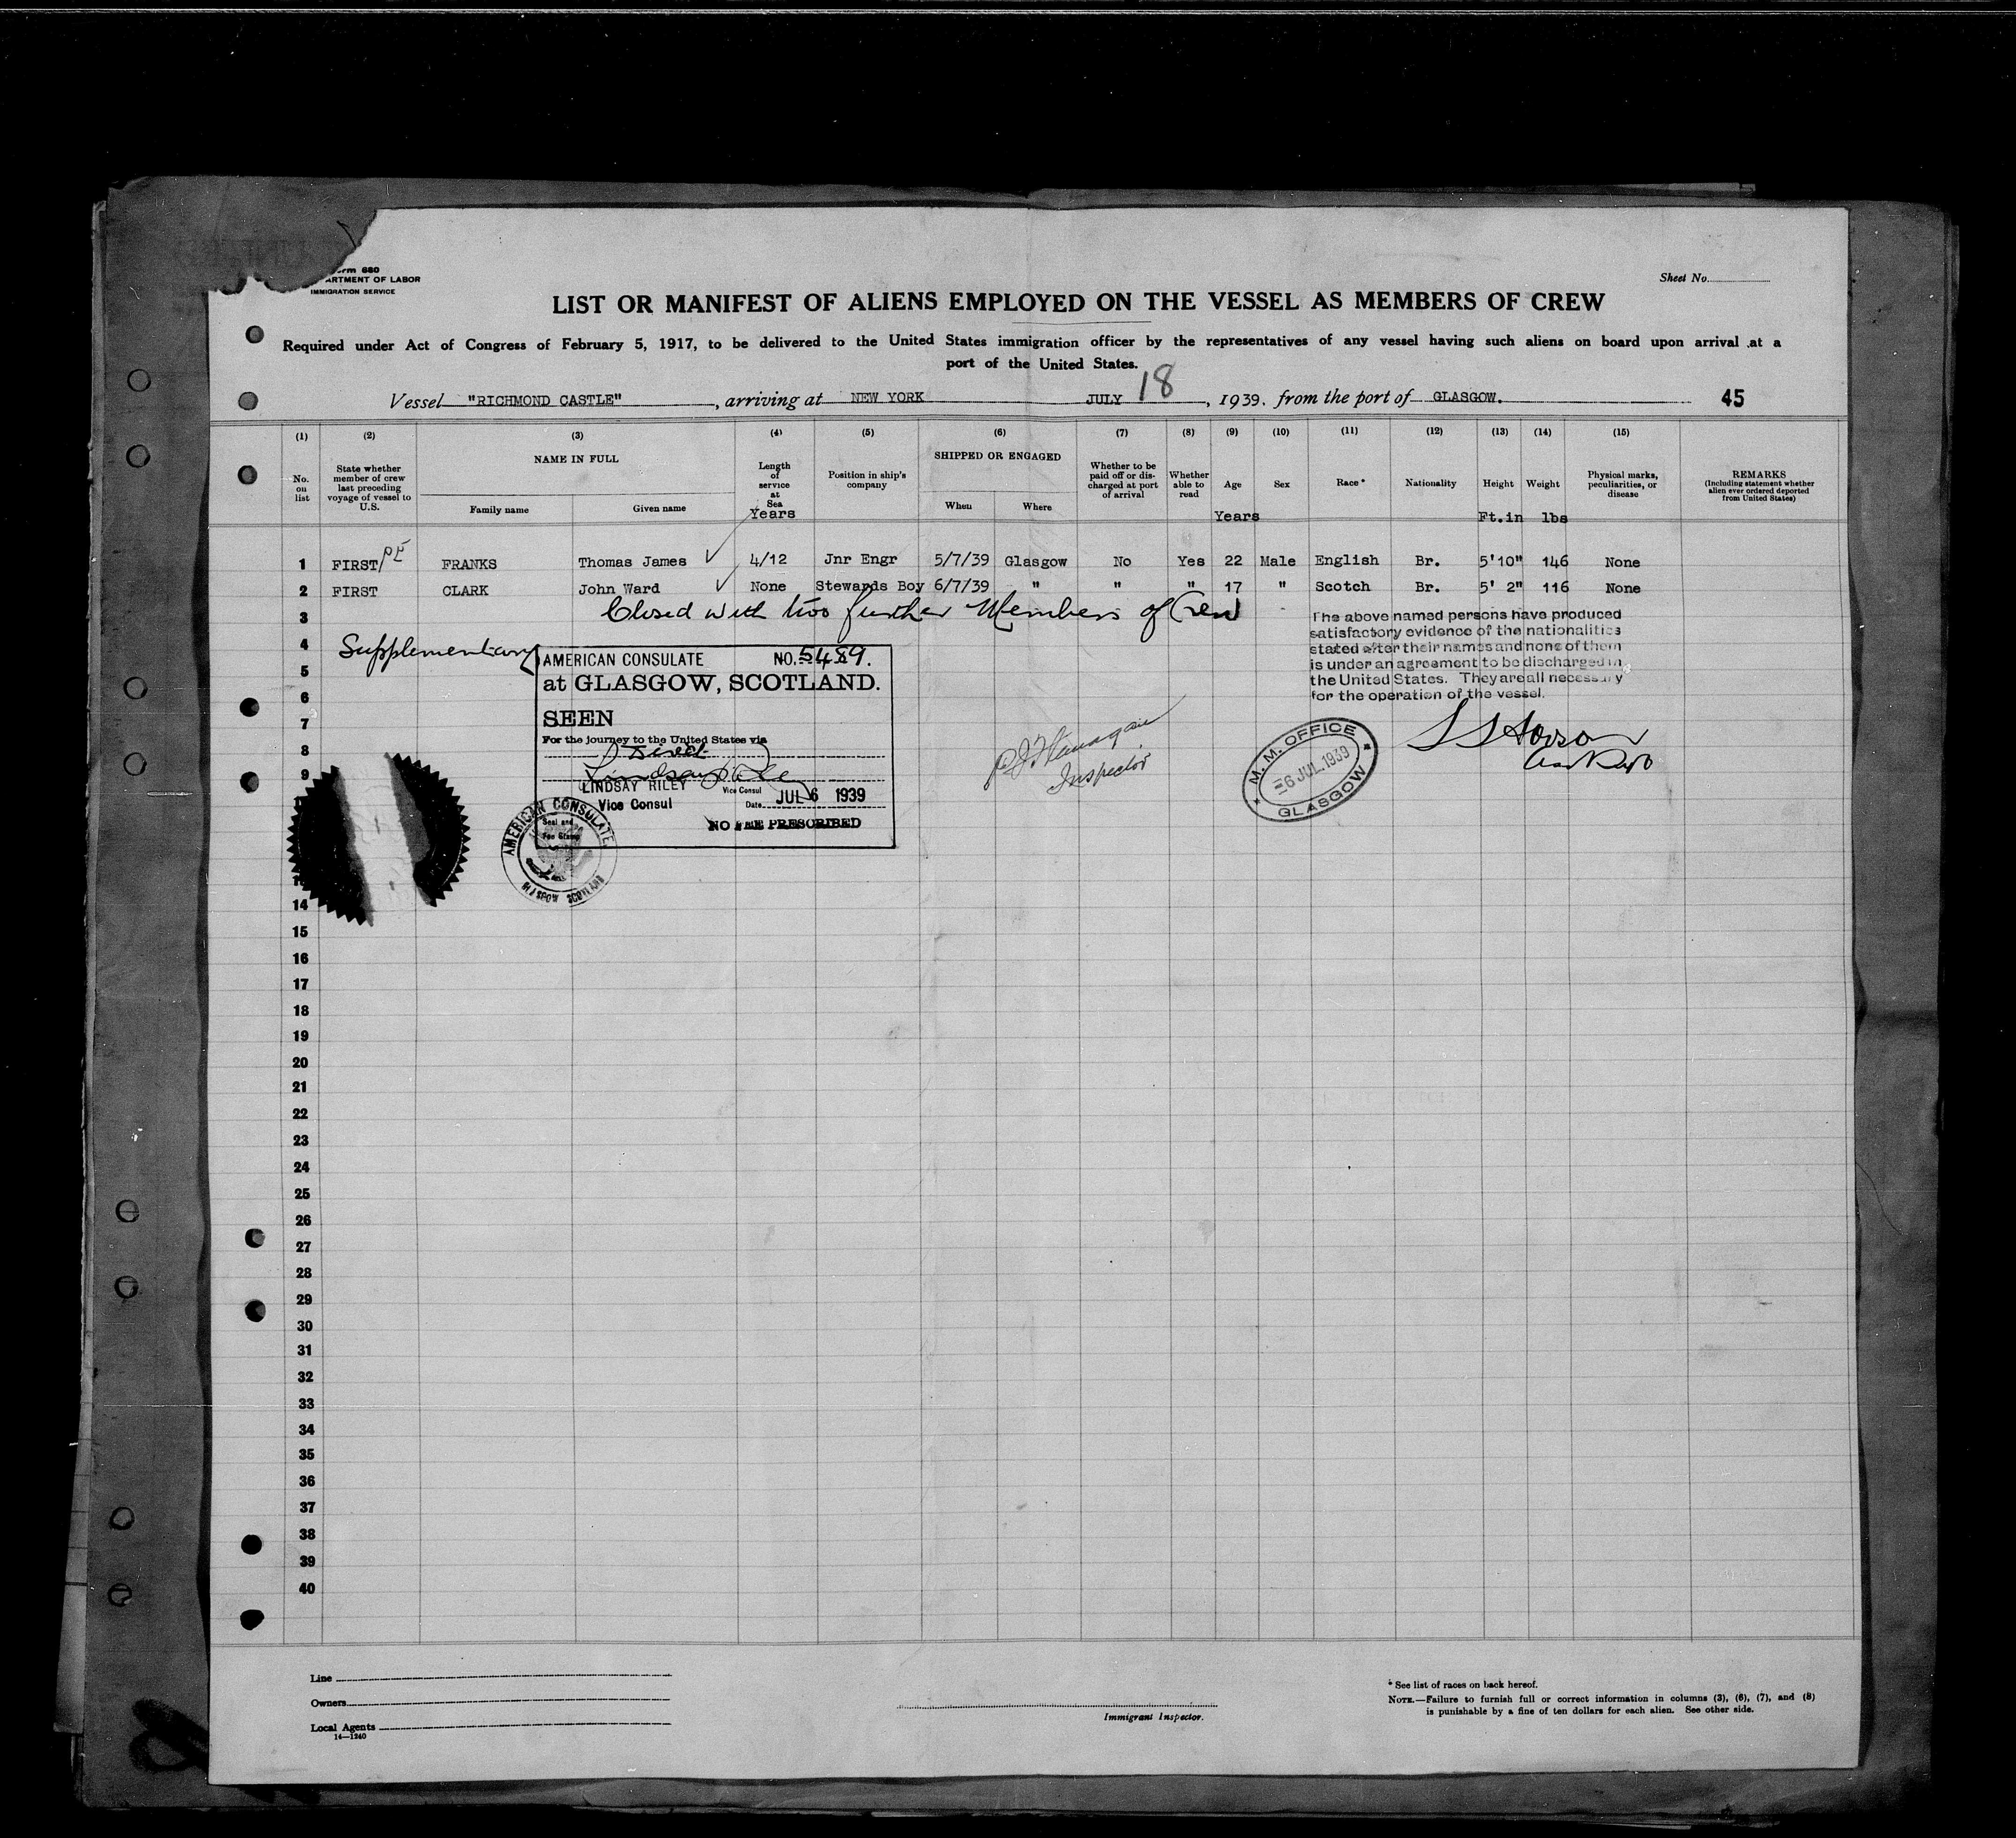 Form 680
ARTMENT OF LABOR
IMMIGRATION SERVICE
Sheet No.
LIST OR MANIFEST OF ALIENS EMPLOYED ON THE VESSEL AS MEMBERS OF CREW
Required under Act of Congress of February 5, 1917, to be delivered to the United States immigration officer by the representatives of any vessel having such aliens on board upon arrival at a
port of the United States.
Vessel "RICHMOND CASTLE", arriving at NEW YORK JULY 18, 1939. from the port of GLASGOW. 45
(1) (2) (3) (4) (5) (6) (7) (8) (9) (10) (11) (12) (13) (14) (15)
No. on list
State whether member of crew last preceding voyage of vessel to U.S.
NAME IN FULL
Family name
Given name
Length of service at Sea Years
Position in ship's company
SHIPPED OR ENGAGED
When
Where
Whether to be paid off or discharged at port of arrival
Whether able to read
Age Years
Sex
Race*
Nationality
Height Ft.in
Weight lbs
Physical marks, peculiarities, or disease
REMARKS
(Including statement whether alien ever ordered deported from United States)
1 FIRST PE FRANKS Thomas James 4/12 Jnr Engr 5/7/39 Glasgow No Yes 22 Male English Br. 5'10" 146 None
2 FIRST CLARK John Ward None Stewards Boy 6/7/39 " " " 17 " Scotch Br. 5' 2" 116 None
3 Closed with two further Members of Crew
The above named persons have produced
satisfactory evidence of the nationalities
stated after their names and none of them
is under an agreement to be discharged in
the United States. They are all necessary
for the operation of the vessel.
4 Supplementary
5
6
7
8
9
AMERICAN CONSULATE NO. 5489.
at GLASGOW, SCOTLAND.
SEEN
For the journey to the United States via
Direct
LINDSAY RILEY Vice Consul
Vice Consul
Date JUL 6 1939
NO FEE PRESCRIBED
AMERICAN CONSULATE
Seal and
Fee Stamp
GLASGOW SCOTLAND
Inspector
M. M. OFFICE
6 JUL 1939
GLASGOW
14
15
16
17
18
19
20
21
22
23
24
25
26
27
28
29
30
31
32
33
34
35
36
37
38
39
40
Line
Owners
Local Agents
14—1240
Immigrant Inspector.
* See list of races on back hereof.
NOTE.—Failure to furnish full or correct information in columns (3), (6), (7), and (8)
is punishable by a fine of ten dollars for each alien. See other side.